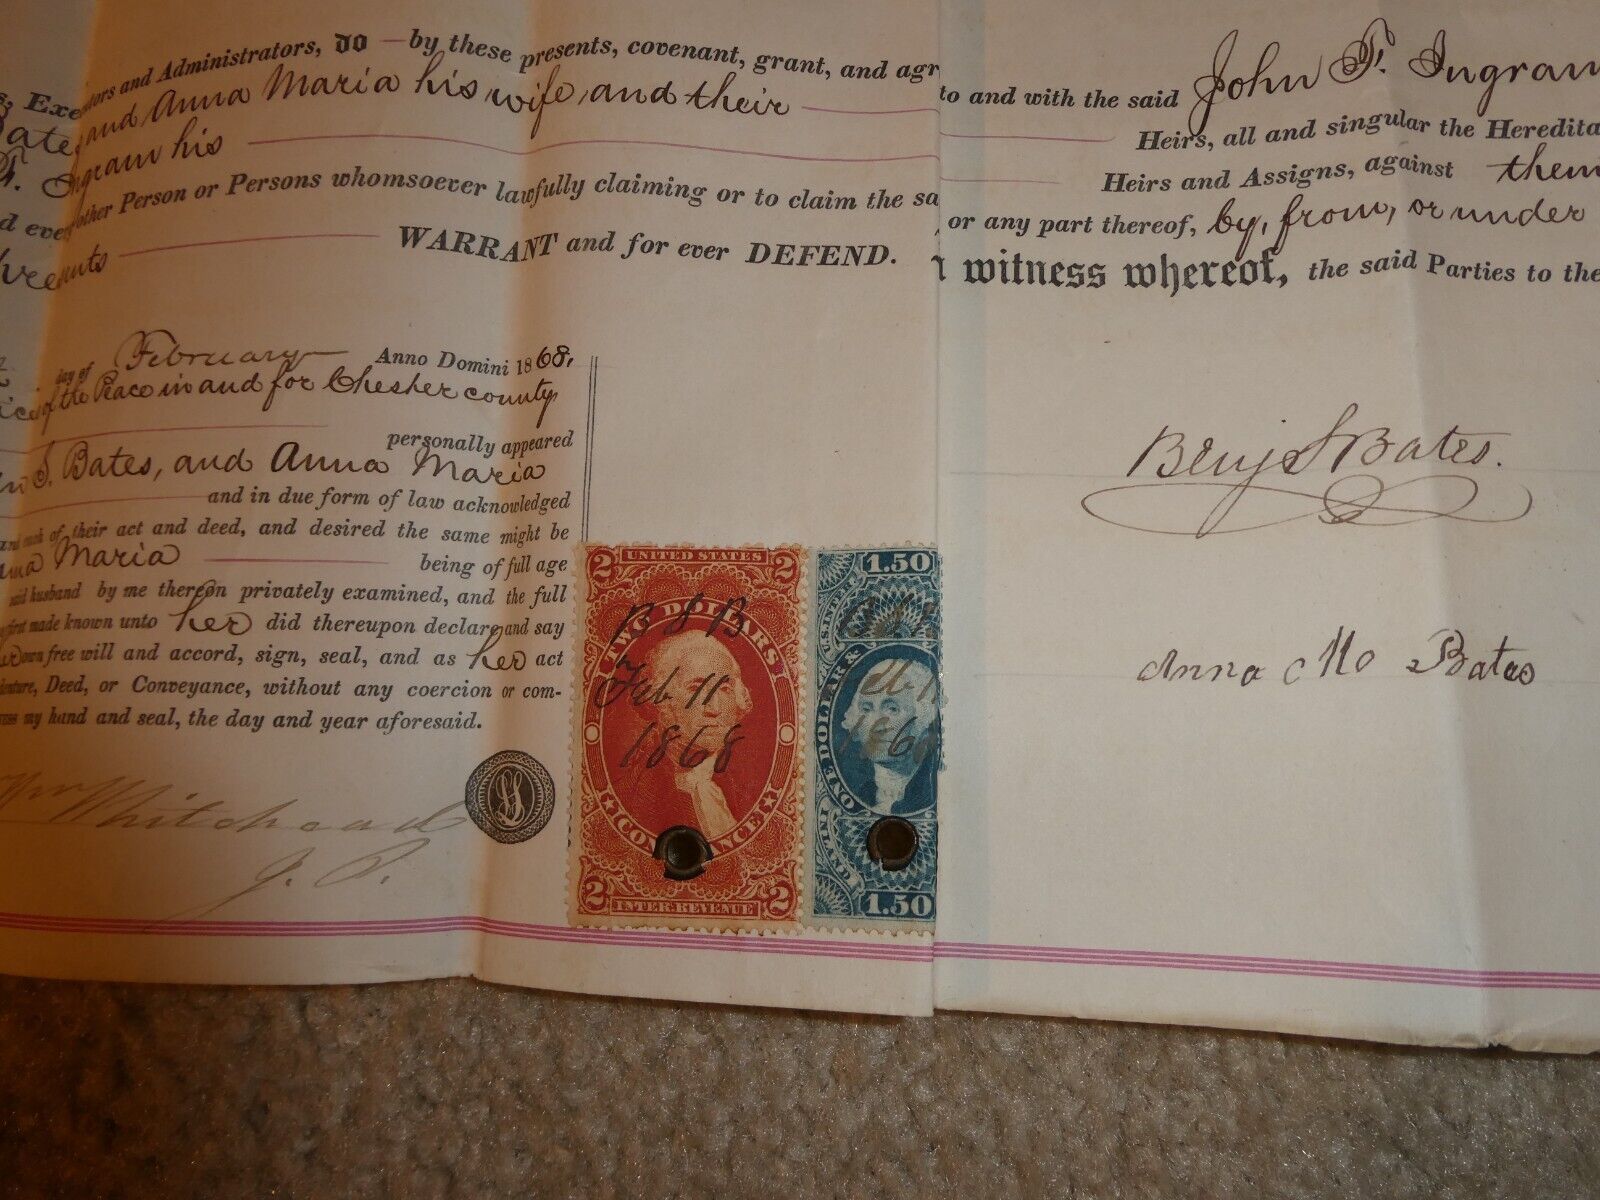 tors and Administrators, do — by these presents, covenant, grant, and agr
and Anna Maria his wife, and their
Ingram his
other Person or Persons whomsoever lawfully claiming or to claim the sa
WARRANT and for ever DEFEND.
to and with the said John F. Ingram
Heirs, all and singular the Heredita
Heirs and Assigns, against them
or any part thereof, by, from, or under
witness whereof, the said Parties to the
day of February Anno Domini 1868,
of the Peace in and for Chester county,
personally appeared
S. Bates, and Anna Maria
and in due form of law acknowledged
and each of their act and deed, and desired the same might be
Maria being of full age
said husband by me thereon privately examined, and the full
first made known unto her did thereupon declare and say
own free will and accord, sign, seal, and as her act
Deed, or Conveyance, without any coercion or com-
my hand and seal, the day and year aforesaid.
Wm Whitehead
J. P.
LS
2 UNITED STATES 2
TWO DOLLARS
B S B
Feb 11
1868
CONVEYANCE
2 INTER. REVENUE 2
1.50
ONE DOLLAR &
1.50
Benj S Bates.
Anna M Bates